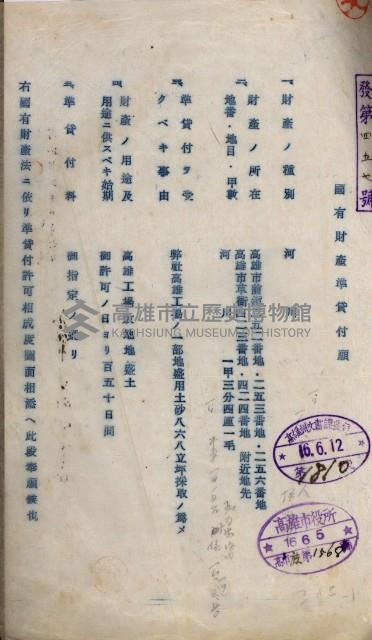 發第四五七號
國有財產準貸付願
一、財產ノ種別 河川
二、財產ノ所在
地番・地目・甲數
高雄市前金二五二番地・二五三番地・二五六番地
高雄市草衙四二三番地・四二四番地 附近地先
河川 一甲三分四厘一毛
三、準貸付ヲ受
クベキ事由
弊社高雄工場ノ一部地盛用土砂八六八立坪採取ノ爲メ
四、財產ノ用途及
用途ニ供スベキ始期
高雄工場敷地地盛土
御許可ノ日ヨリ百五十日間
五、準貸付料 御指定ノ通リ
右國有財產法ニ依リ準貸付許可相成度圖面相添ヘ此段奉願候也
高雄市立歷史博物館
KAOHSIUNG MUSEUM OF HISTORY
16.6.12
第1810
高雄市役所
16 6 5